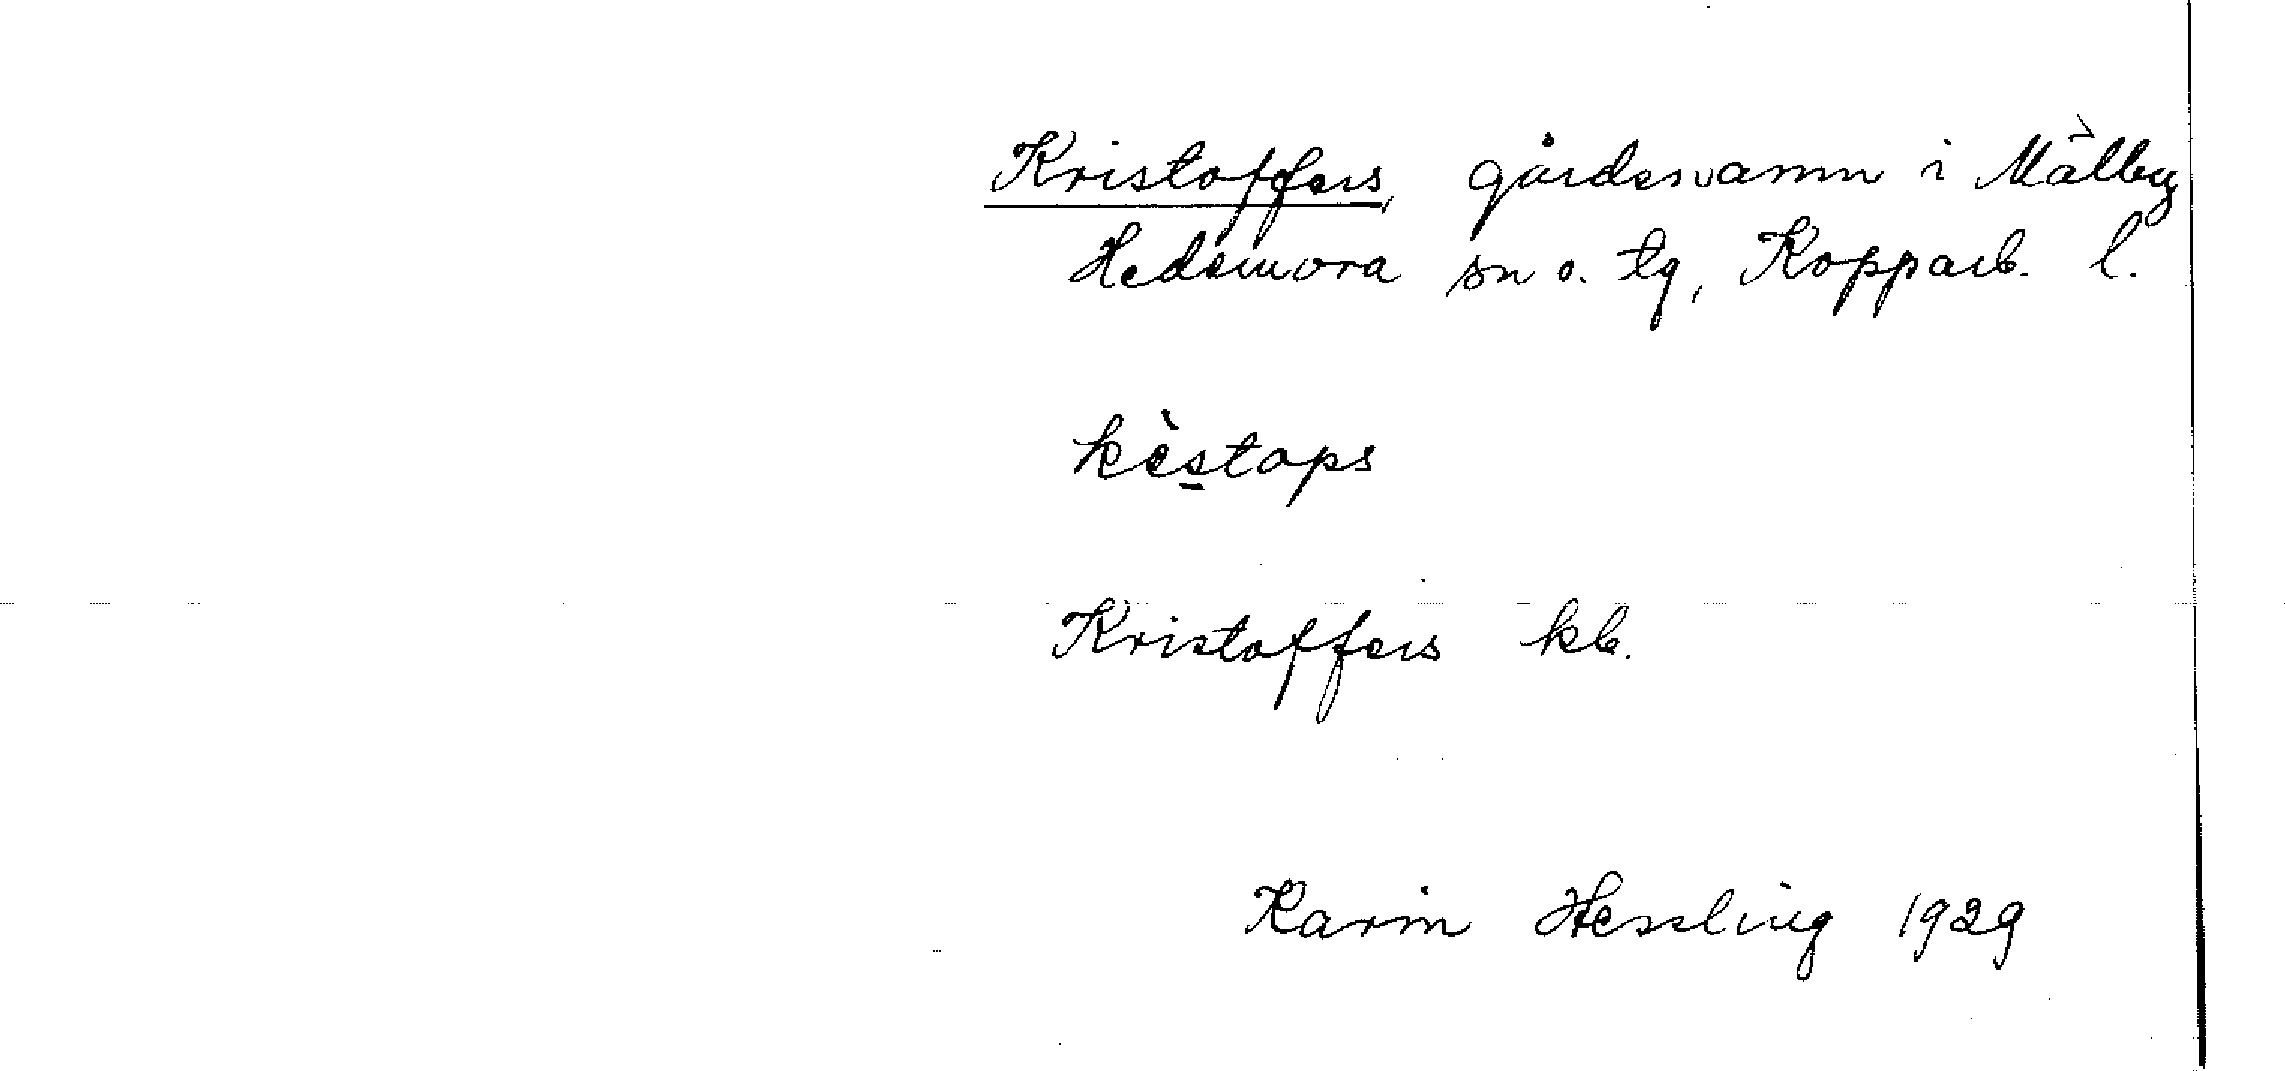 Kristoffers, gårdsnamn i Mälby
Hedemora sn o. tg, Kopparb. l.
kèstops
Kristoffers kb.
Karin Hessling 1929